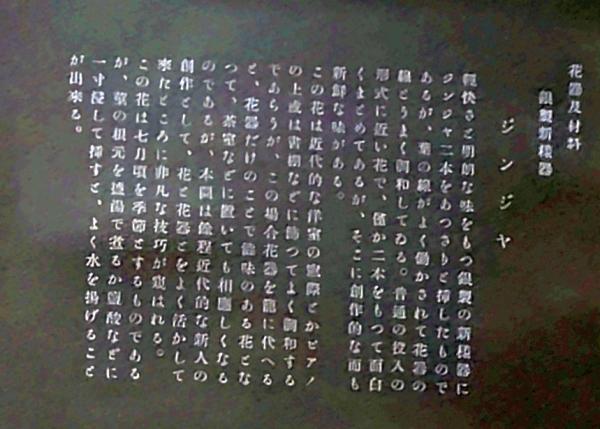 花器及材料
銀製新様器
ジンジヤ
輕快さと明朗な味をもつ銀製の新様器に
ジンジヤ二本をあつさりと挿したもので
あるが、葉の線がよく働かされて花器の
線とうまく調和してゐる。普通の投入の
形式に近い花で、僅か二本をもつて面白
くまとめてあるが、そこに創作的な而も
新鮮な味がある。
この花は近代的な洋室の窓際とかピアノ
の上或は書棚などに飾つてよく調和する
であらうが、この場合花器を籠に代へる
と、花器だけのことで趣味のある花とな
つて、茶室などに置いても相應しくなる
のであるが、本圖は餘程近代的な新人の
創作として、花と花器とをよく活かして
來たところに非凡な技巧が窺はれる。
この花は七月頃を季節とするものである
が、莖の根元を熱湯で煮るか鹽酸などに
一寸浸して挿すと、よく水を揚げること
が出來る。